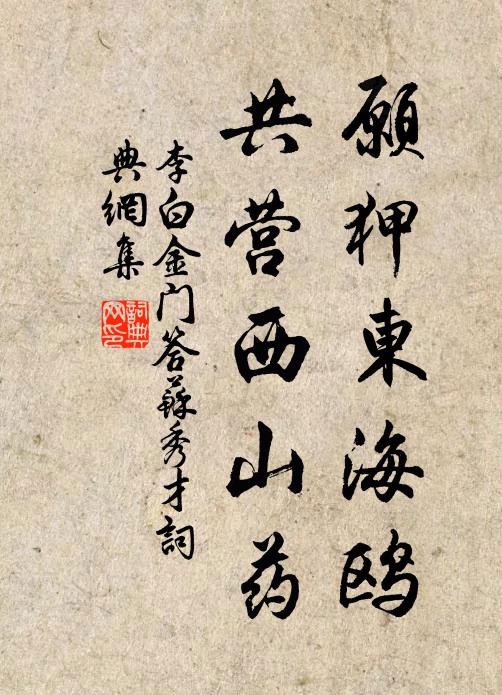 願狎東海鸥
共营西山药
李白金门答蘇秀才詞
典網集
詞典网印